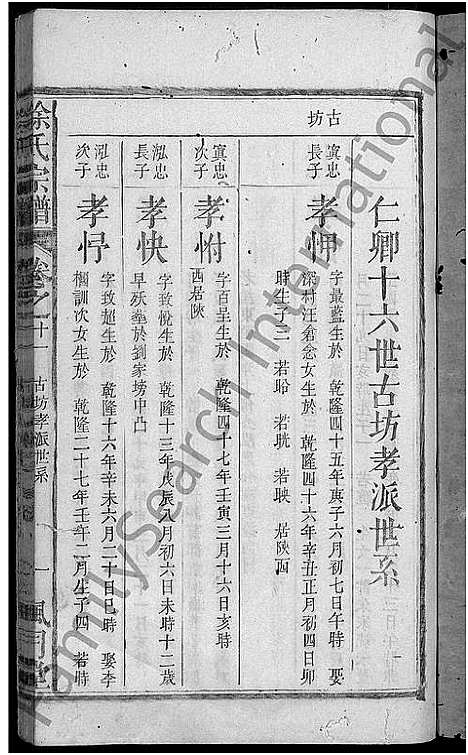 仁卿十六世古坊孝派世系
古坊
寘忠長子
孝岬
字最藍生於 乾隆四十五年庚子六月初七日午時 娶
深村汪倉忿女生於 乾隆四十六年辛丑正月初四日卯
時生子三 若聆 若晄 若映 居陝西
寘忠次子
孝咐
字百呈生於 乾隆四十七年壬寅三月十六日亥時
西居陝
泓忠長子
孝快
字致悅生於 乾隆十三年戊辰八月初六日未時十二歲
早殀塟於劉家塝中凸
泓忠次子
孝忬
字致超生於 乾隆十六年辛未六月二十日巳時 娶李
訓次女生於 乾隆二十七年壬午二月生子四 若時
余氏宗譜
卷之十
古坊孝派世系
一
堂
FamilySearch International